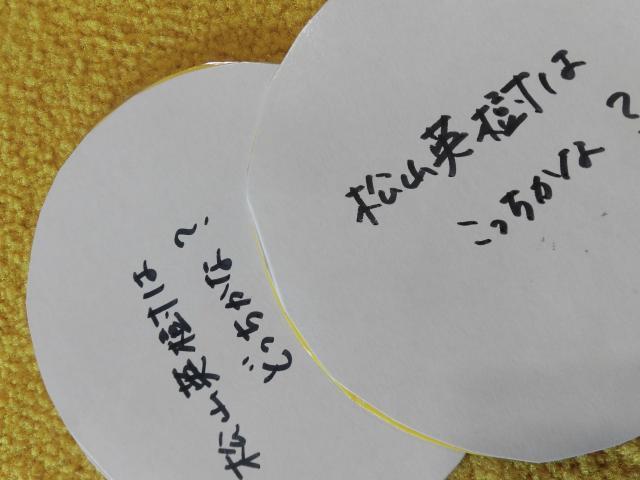 松山英樹は
こっちかな?
松山英樹は
どっちかな?